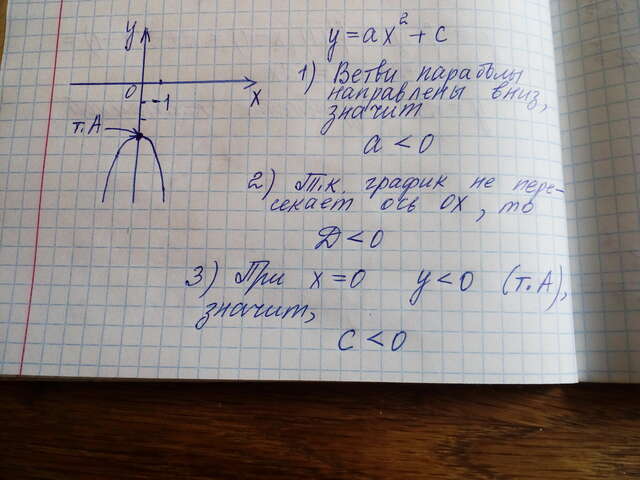 y
0
-1
x
т. А
y = ax² + c
1) Ветви параболы
направлены вниз,
значит
a < 0
2) Т.к. график не пере-
секает ось OX, то
D < 0
3) При x = 0 y < 0 (т. А),
значит,
c < 0